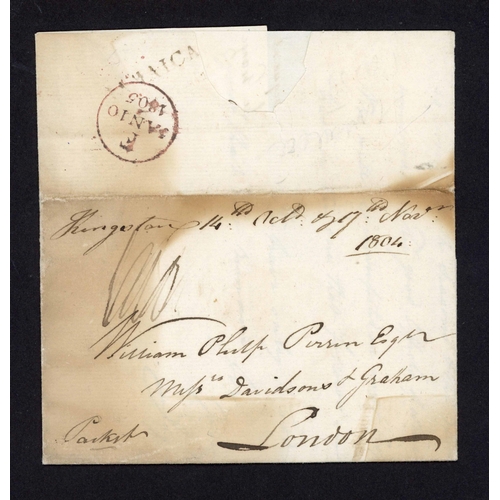 JAMAICA
JAN 10
1805
Kingston 14th Octr & 17th Novr
1804
William Philp Perrin Esqr
Messrs Davidsons & Graham
London
Packet